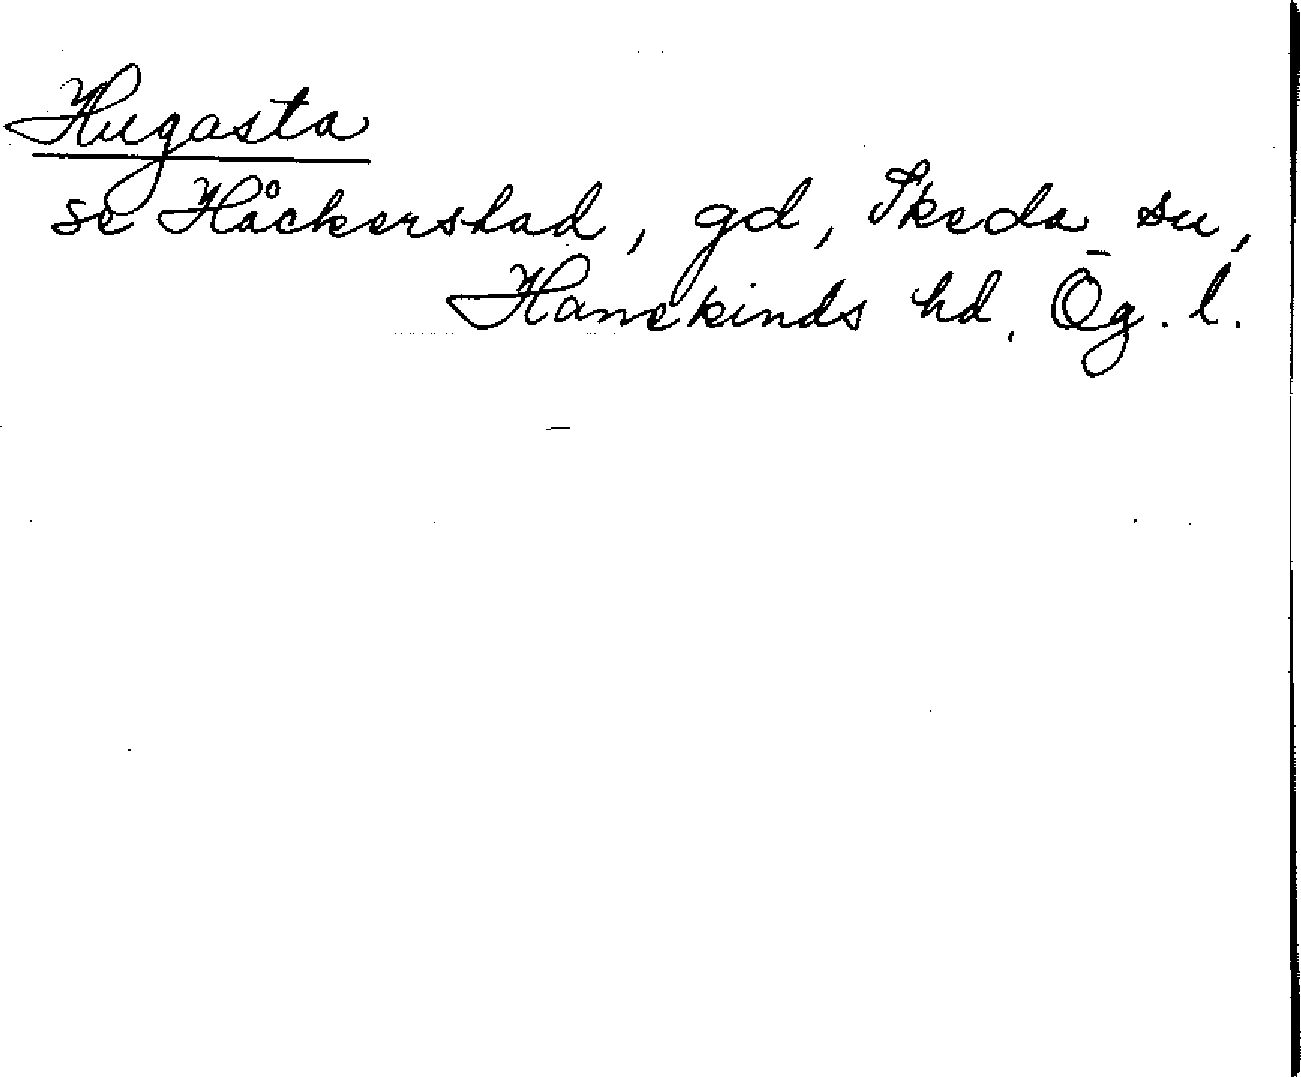 Hugasta
se Håckerstad, gd, Skeda su,
Hanekinds hd. Ög. l.